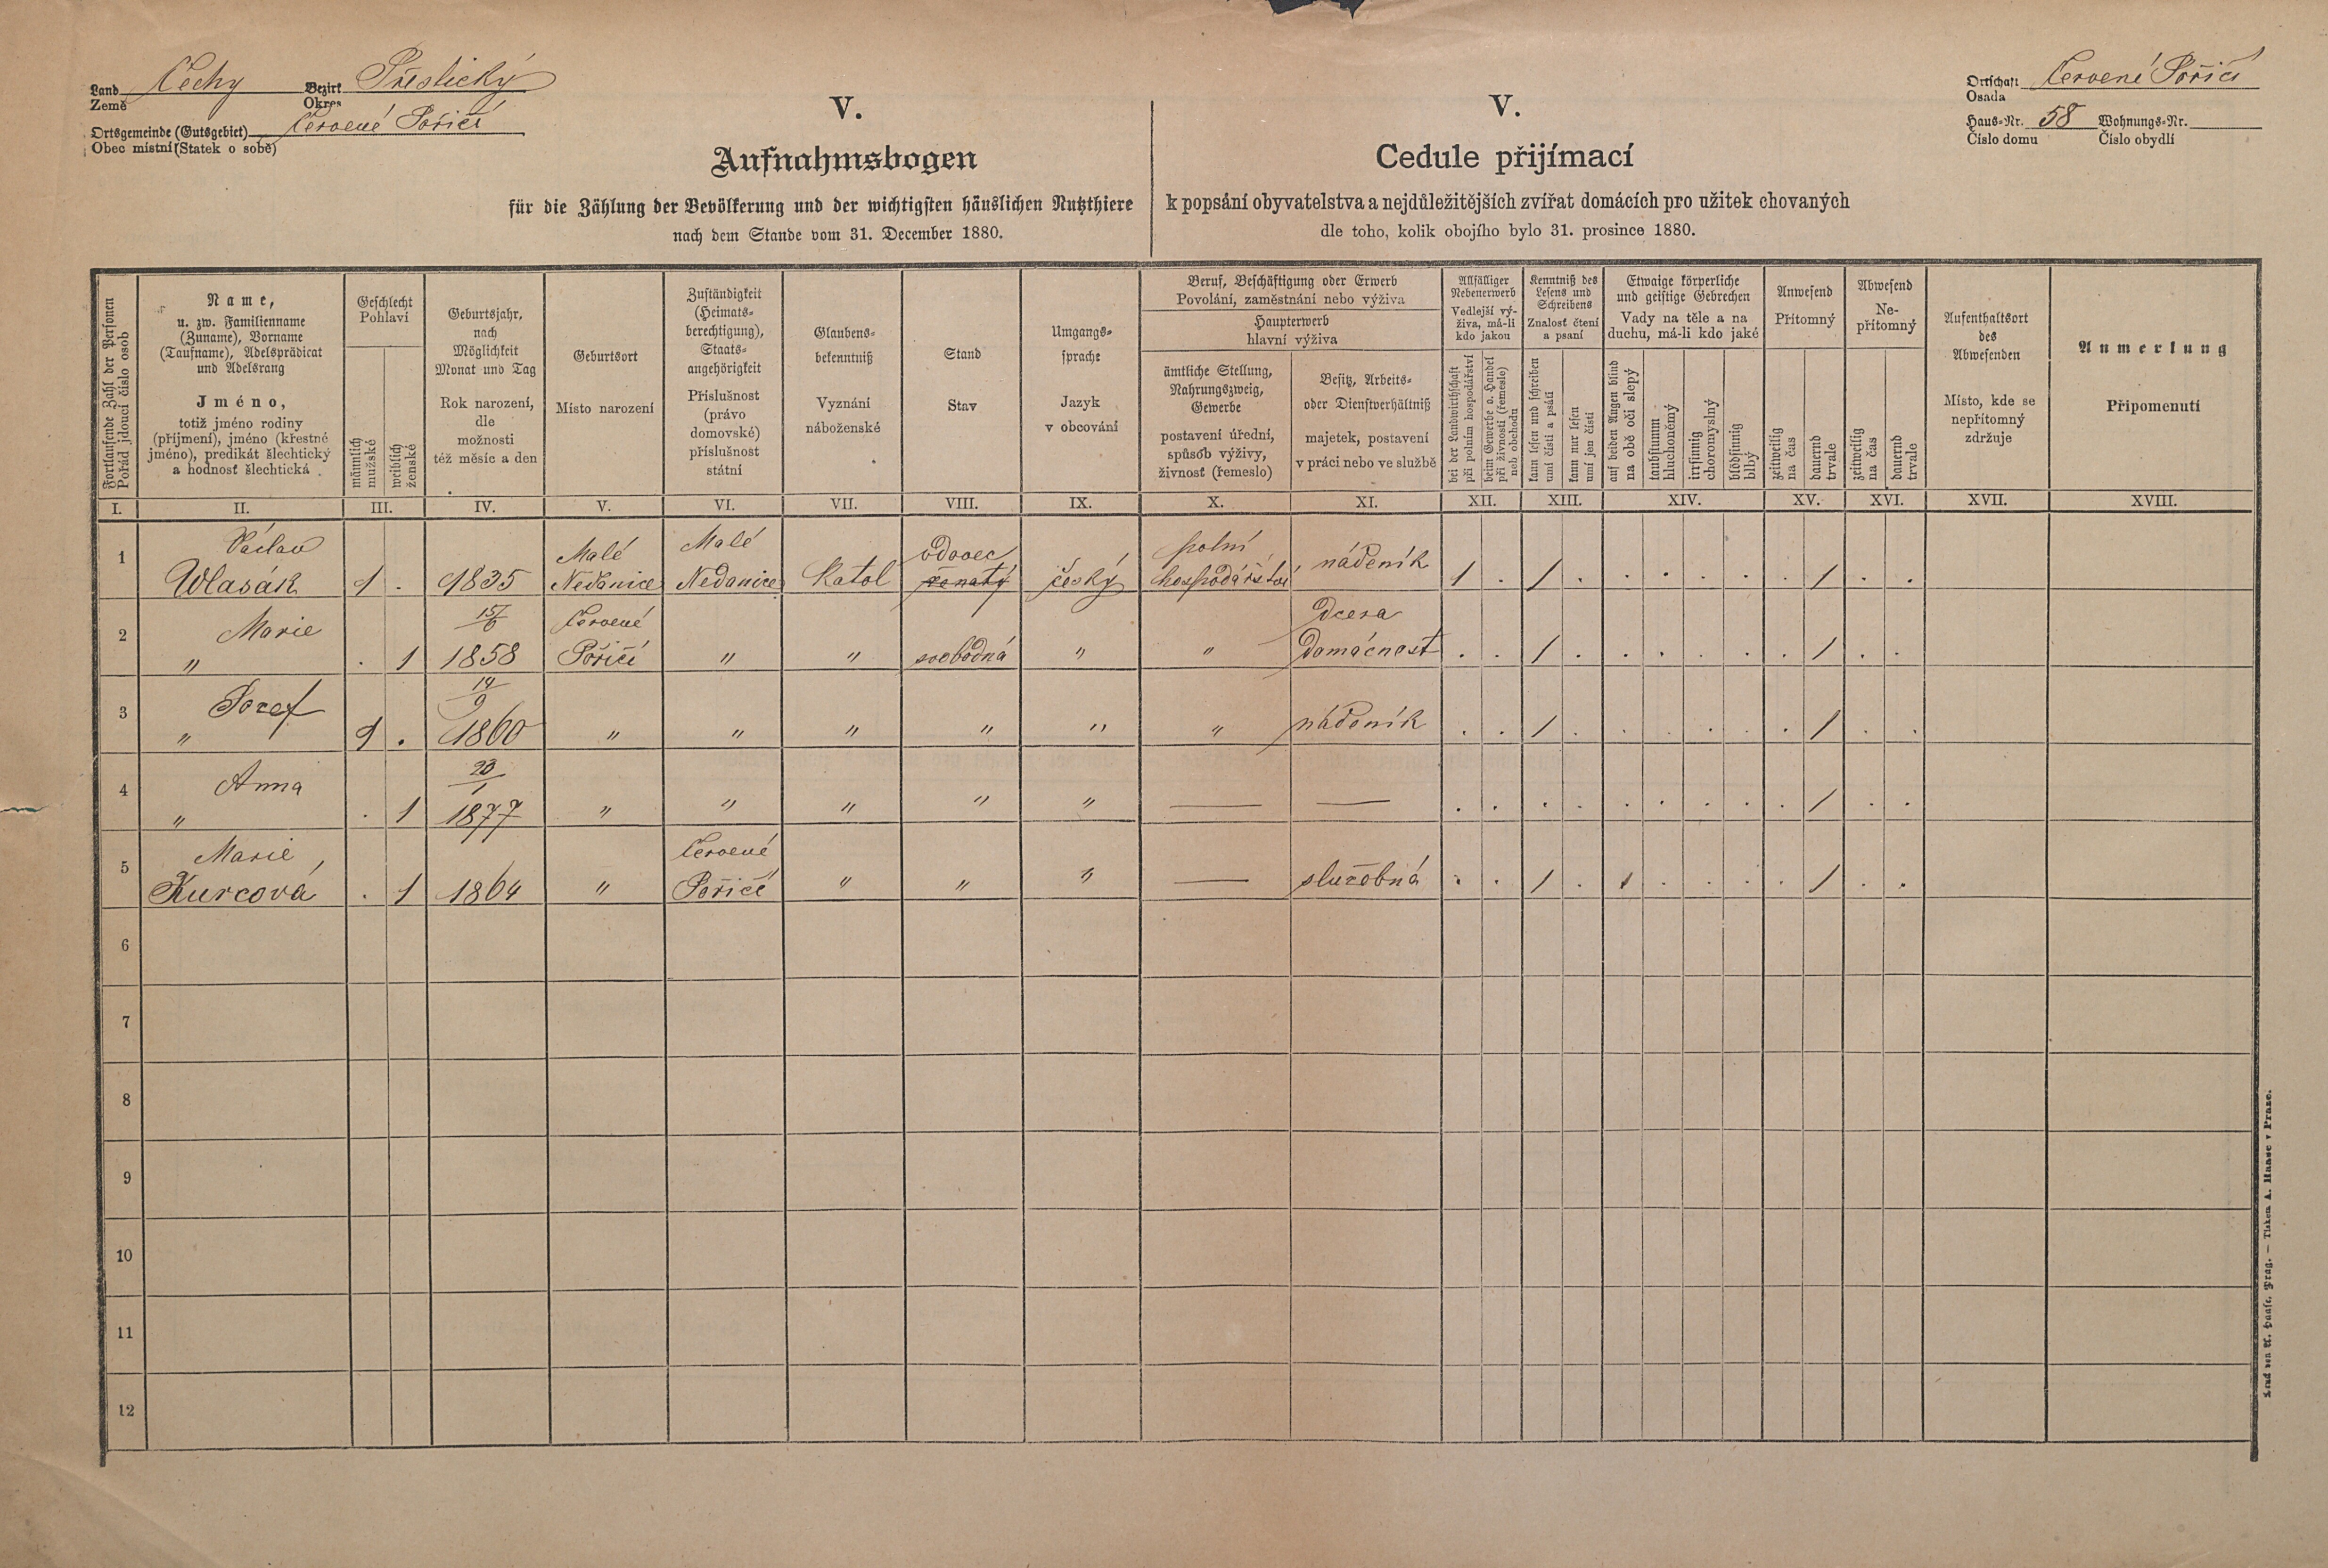 Land Čechy Bezirk Přestický
Země Okres
Ortsgemeinde (Gutsgebiet) Červené Poříčí
Obec místní (Statek o sobě)
V.
Aufnahmsbogen
für die Zählung der Bevölkerung und der wichtigsten häuslichen Nutzthiere
nach dem Stande vom 31. December 1880.
V.
Cedule přijímací
k popsání obyvatelstva a nejdůležitějších zvířat domácích pro užitek chovaných
dle toho, kolik obojího bylo 31. prosince 1880.
Ortschaft Červené Poříčí
Osada
Haus-Nr. 58 Wohnungs-Nr.
Číslo domu Číslo obydlí
Fortlaufende Zahl der Personen
Pořád jdoucí číslo osob
Name,
u. zw. Familienname
(Zuname), Vorname
(Taufname), Adelsprädicat
und Adelsrang
Jméno,
totiž jméno rodiny
(příjmení), jméno (křestné
jméno), predikát šlechtický
a hodnosť šlechtická
Geschlecht
Pohlaví
männlich
mužské
weiblich
ženské
Geburtsjahr,
nach
Möglichkeit
Monat und Tag
Rok narození,
dle
možnosti
též měsíc a den
Geburtsort
Místo narození
Zuständigkeit
(Heimats-
berechtigung),
Staats-
angehörigkeit
Příslušnost
(právo
domovské)
příslušnost
státní
Glaubens-
bekenntniß
Vyznání
náboženské
Stand
Stav
Umgangs-
sprache
Jazyk
v obcování
Beruf, Beschäftigung oder Erwerb
Povolání, zaměstnání nebo výživa
Haupterwerb
hlavní výživa
ämtliche Stellung,
Nahrungszweig,
Gewerbe
postavení úřední,
spůsob výživy,
živnosť (řemeslo)
Besitz, Arbeits-
oder Dienstverhältniß
majetek, postavení
v práci nebo ve službě
Allfälliger
Nebenerwerb
Vedlejší vý-
živa, má-li
kdo jakou
bei der Landwirthschaft
při polním hospodářství
beim Gewerbe o. Handel
při živnosti (řemesle)
neb obchodu
Kenntniß des
Lesens und
Schreibens
Znalosť čtení
a psaní
kann lesen und schreiben
umí čísti a psáti
kann nur lesen
umí jen čísti
Etwaige körperliche
und geistige Gebrechen
Vady na těle a na
duchu, má-li kdo jaké
auf beiden Augen blind
na obě oči slepý
taubstumm
hluchoněmý
irrsinnig
choromyslný
blödsinnig
blbý
Anwesend
Přítomný
zeitweilig
na čas
dauernd
trvale
Abwesend
Ne-
přítomný
zeitweilig
na čas
dauernd
trvale
Aufenthaltsort
des
Abwesenden
Místo, kde se
nepřítomný
zdržuje
Anmerkung
Připomenutí
I. II. III. IV. V. VI. VII. VIII. IX. X. XI. XII. XIII. XIV. XV. XVI. XVII. XVIII.
Václav Malé Malé vdovec polní
1 Wlasák 1 . 1835 Nedanice Nedanice Katol ženatý český hospodářství nádeník 1 . 1 . . . . . . 1 . .
Marie 15/6 Červené dcera
2 " . 1 1858 Poříčí " " svobodná " " domácnost . . 1 . . . . . . 1 . .
Jozef 14/9
3 " 1 . 1860 " " " " " " nádeník . . 1 . . . . . . 1 . .
Anna 20/1
4 " . 1 1877 " " " " " — — . . . . . . . . . 1 . .
Marie, Červené
5 Kurcová . 1 1864 " Poříčí " " " — služobná . . 1 . . . . . . 1 . .
6
7
8
9
10
11
12
Druck von A. Haase, Prag. — Tiskem A. Haase v Praze.